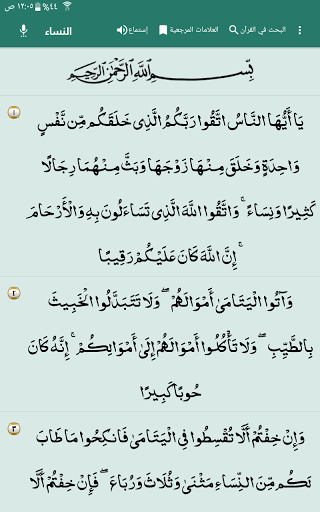 ٤٤% ١٢:٠٥ ص
النساء
إستماع
العلامات المرجعية
البحث في القرآن
بِسْمِ اللَّهِ الرَّحْمَٰنِ الرَّحِيمِ
١
يَا أَيُّهَا النَّاسُ اتَّقُوا رَبَّكُمُ الَّذِي خَلَقَكُم مِّن نَّفْسٍ
وَاحِدَةٍ وَخَلَقَ مِنْهَا زَوْجَهَا وَبَثَّ مِنْهُمَا رِجَالًا
كَثِيرًا وَنِسَاءً ۚ وَاتَّقُوا اللَّهَ الَّذِي تَسَاءَلُونَ بِهِ وَالْأَرْحَامَ
ۚ إِنَّ اللَّهَ كَانَ عَلَيْكُمْ رَقِيبًا
٢
وَآتُوا الْيَتَامَىٰ أَمْوَالَهُمْ ۖ وَلَا تَتَبَدَّلُوا الْخَبِيثَ
بِالطَّيِّبِ ۖ وَلَا تَأْكُلُوا أَمْوَالَهُمْ إِلَىٰ أَمْوَالِكُمْ ۚ إِنَّهُ كَانَ
حُوبًا كَبِيرًا
٣
وَإِنْ خِفْتُمْ أَلَّا تُقْسِطُوا فِي الْيَتَامَىٰ فَانكِحُوا مَا طَابَ
لَكُم مِّنَ النِّسَاءِ مَثْنَىٰ وَثُلَاثَ وَرُبَاعَ ۖ فَإِنْ خِفْتُمْ أَلَّا